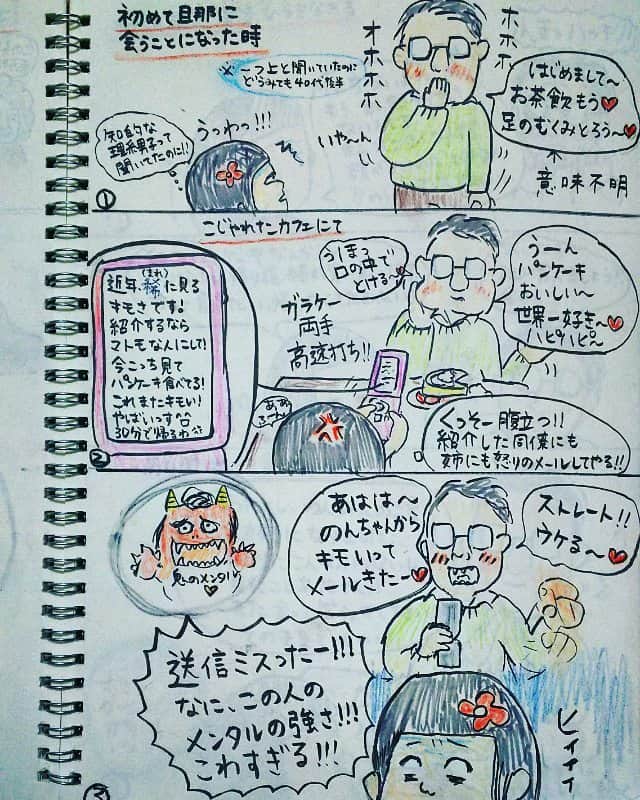 初めて旦那に
会うことになった時
※一つ上と聞いていたのに
どうみても40代後半
オホホホ
オホホホ
はじめまして〜
お茶飲もう♥
足のむくみとろう〜♥
意味不明
いや〜ん
うっわっ!!!
知的な
理系男子って
聞いてたのに!!
①
こじゃれたカフェにて
近年、稀(まれ)に見る
キモさです!
紹介するなら
マトモなんにして!
今こっち見て
パンケーキ食べてる!
これまたキモい!
やばいっす
30分で帰るわ
うほっ
口の中で
とける〜
うーん
パンケーキ
おいしい〜
世界一好き〜
ハピハピ〜
ガラケー
両手
高速打ち!!
くっそー腹立つ!!
紹介した同僚にも
姉にも怒りのメールしてやる!!
②
鬼のメンタル
あはは〜
のんちゃんから
キモいって
メールきたー♥
ストレート!!
ウケる〜♥
送信ミスったー!!!
なに、この人の
メンタルの強さ!!!
こわすぎる!!!
ヒィィィ
③